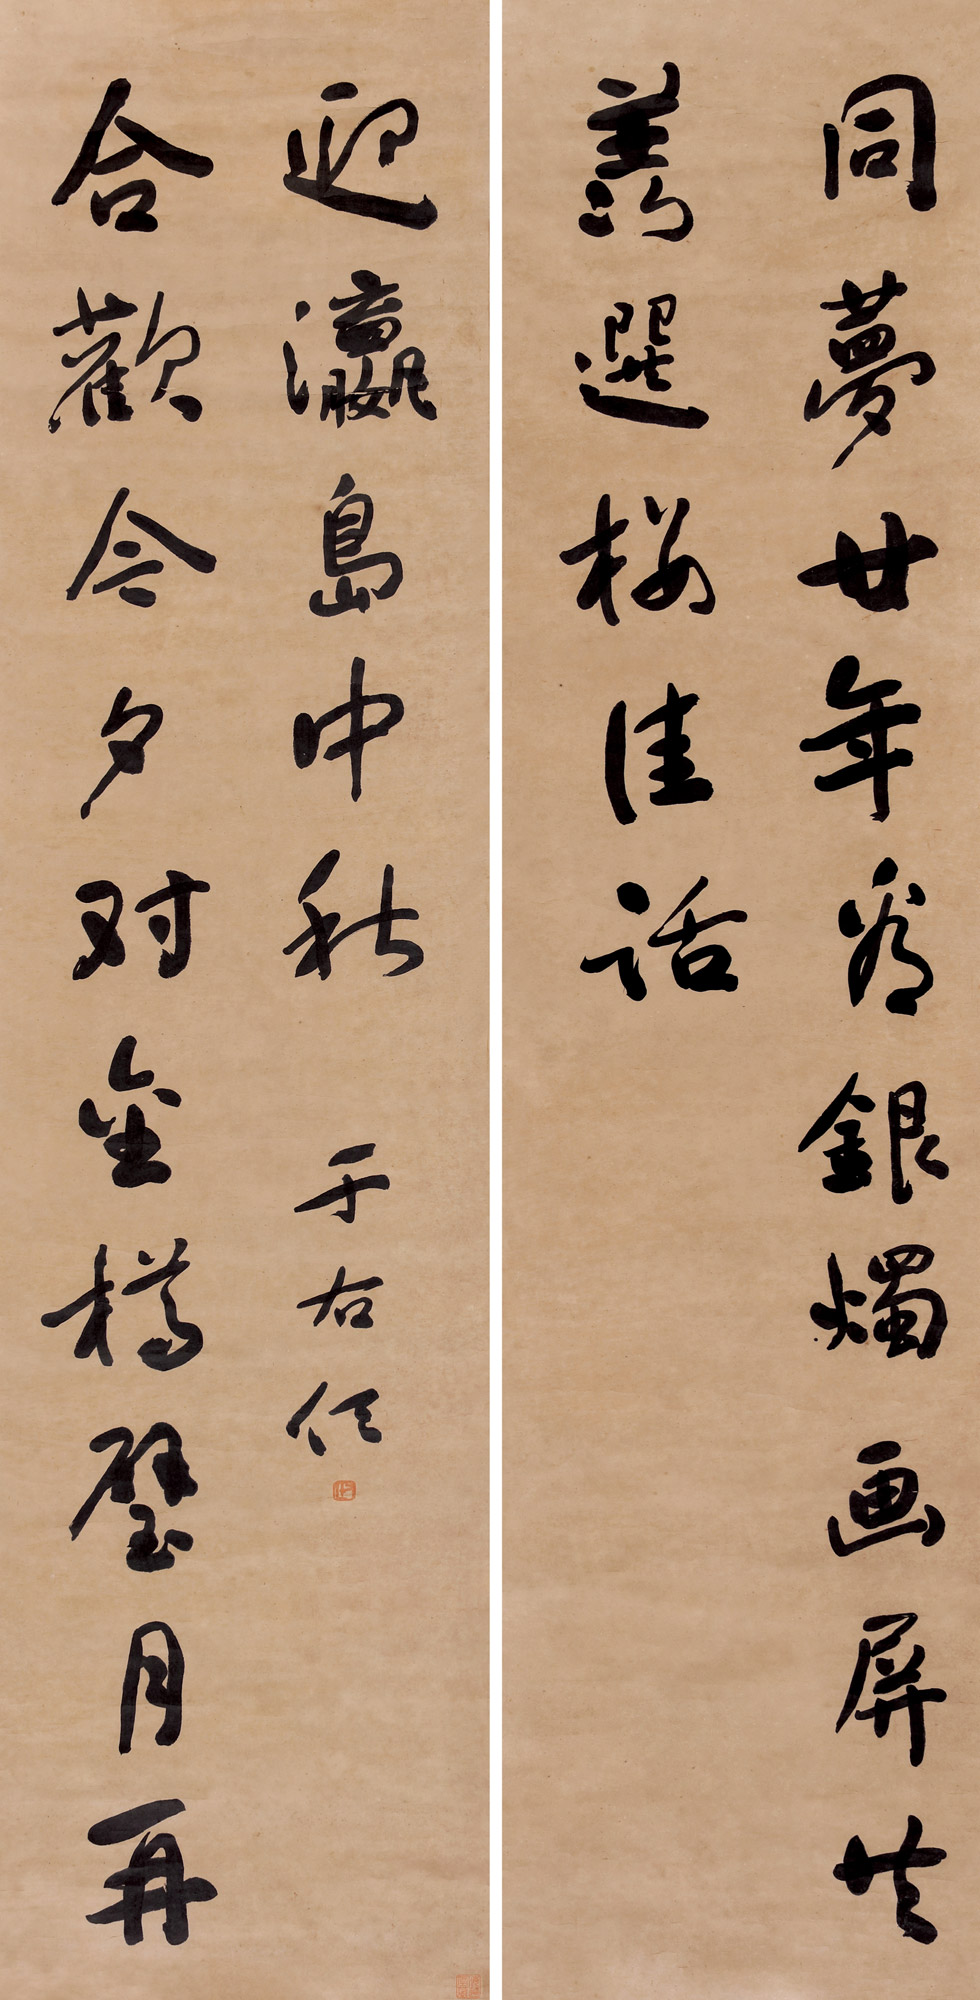 同夢廿年看銀燭画屏共
羨選樓佳話
合歡今夕对金樽璧月再
迎瀛島中秋
于右任